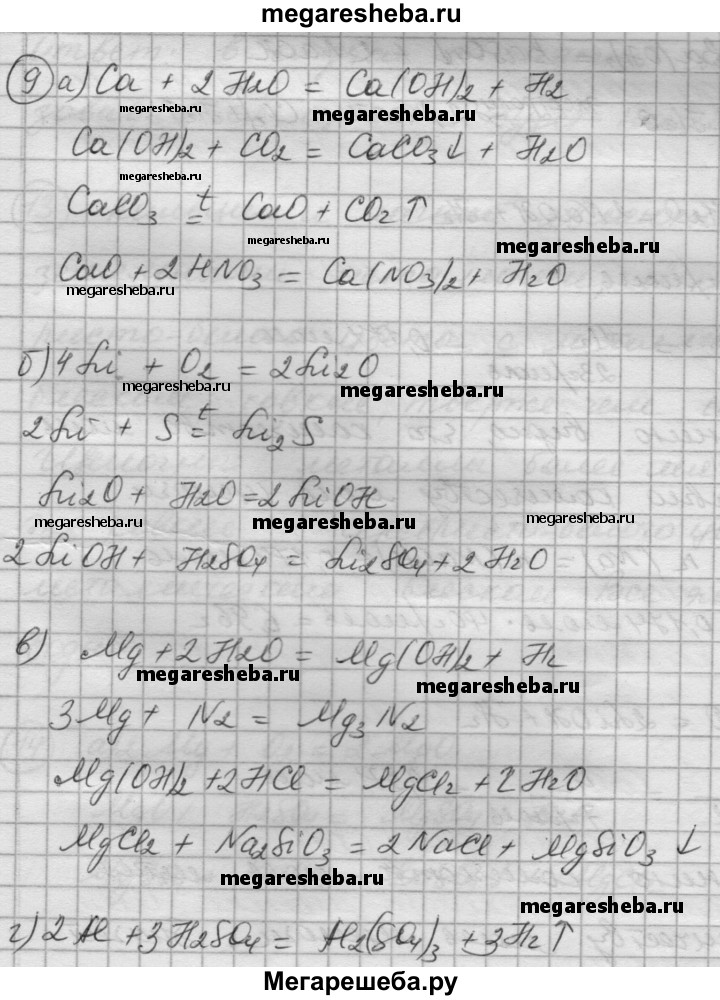 megaresheba.ru
9 а) Ca + 2H2O = Ca(OH)2 + H2
megaresheba.ru megaresheba.ru
Ca(OH)2 + CO2 = CaCO3↓ + H2O
megaresheba.ru
CaCO3 t= CaO + CO2↑
megaresheba.ru megaresheba.ru
CaO + 2HNO3 = Ca(NO3)2 + H2O
megaresheba.ru megaresheba.ru
б) 4Li + O2 = 2Li2O
megaresheba.ru megaresheba.ru
2Li + S t= Li2S
Li2O + H2O = 2LiOH
megaresheba.ru megaresheba.ru megaresheba.ru
2LiOH + H2SO4 = Li2SO4 + 2H2O
в) Mg + 2H2O = Mg(OH)2 + H2
megaresheba.ru megaresheba.ru
3Mg + N2 = Mg3N2
Mg(OH)2 + 2HCl = MgCl2 + 2H2O
MgCl2 + Na2SiO3 = 2NaCl + MgSiO3↓
megaresheba.ru
megaresheba.ru
г) 2Al + 3H2SO4 = Al2(SO4)3 + 3H2↑
Мегарешеба.ру